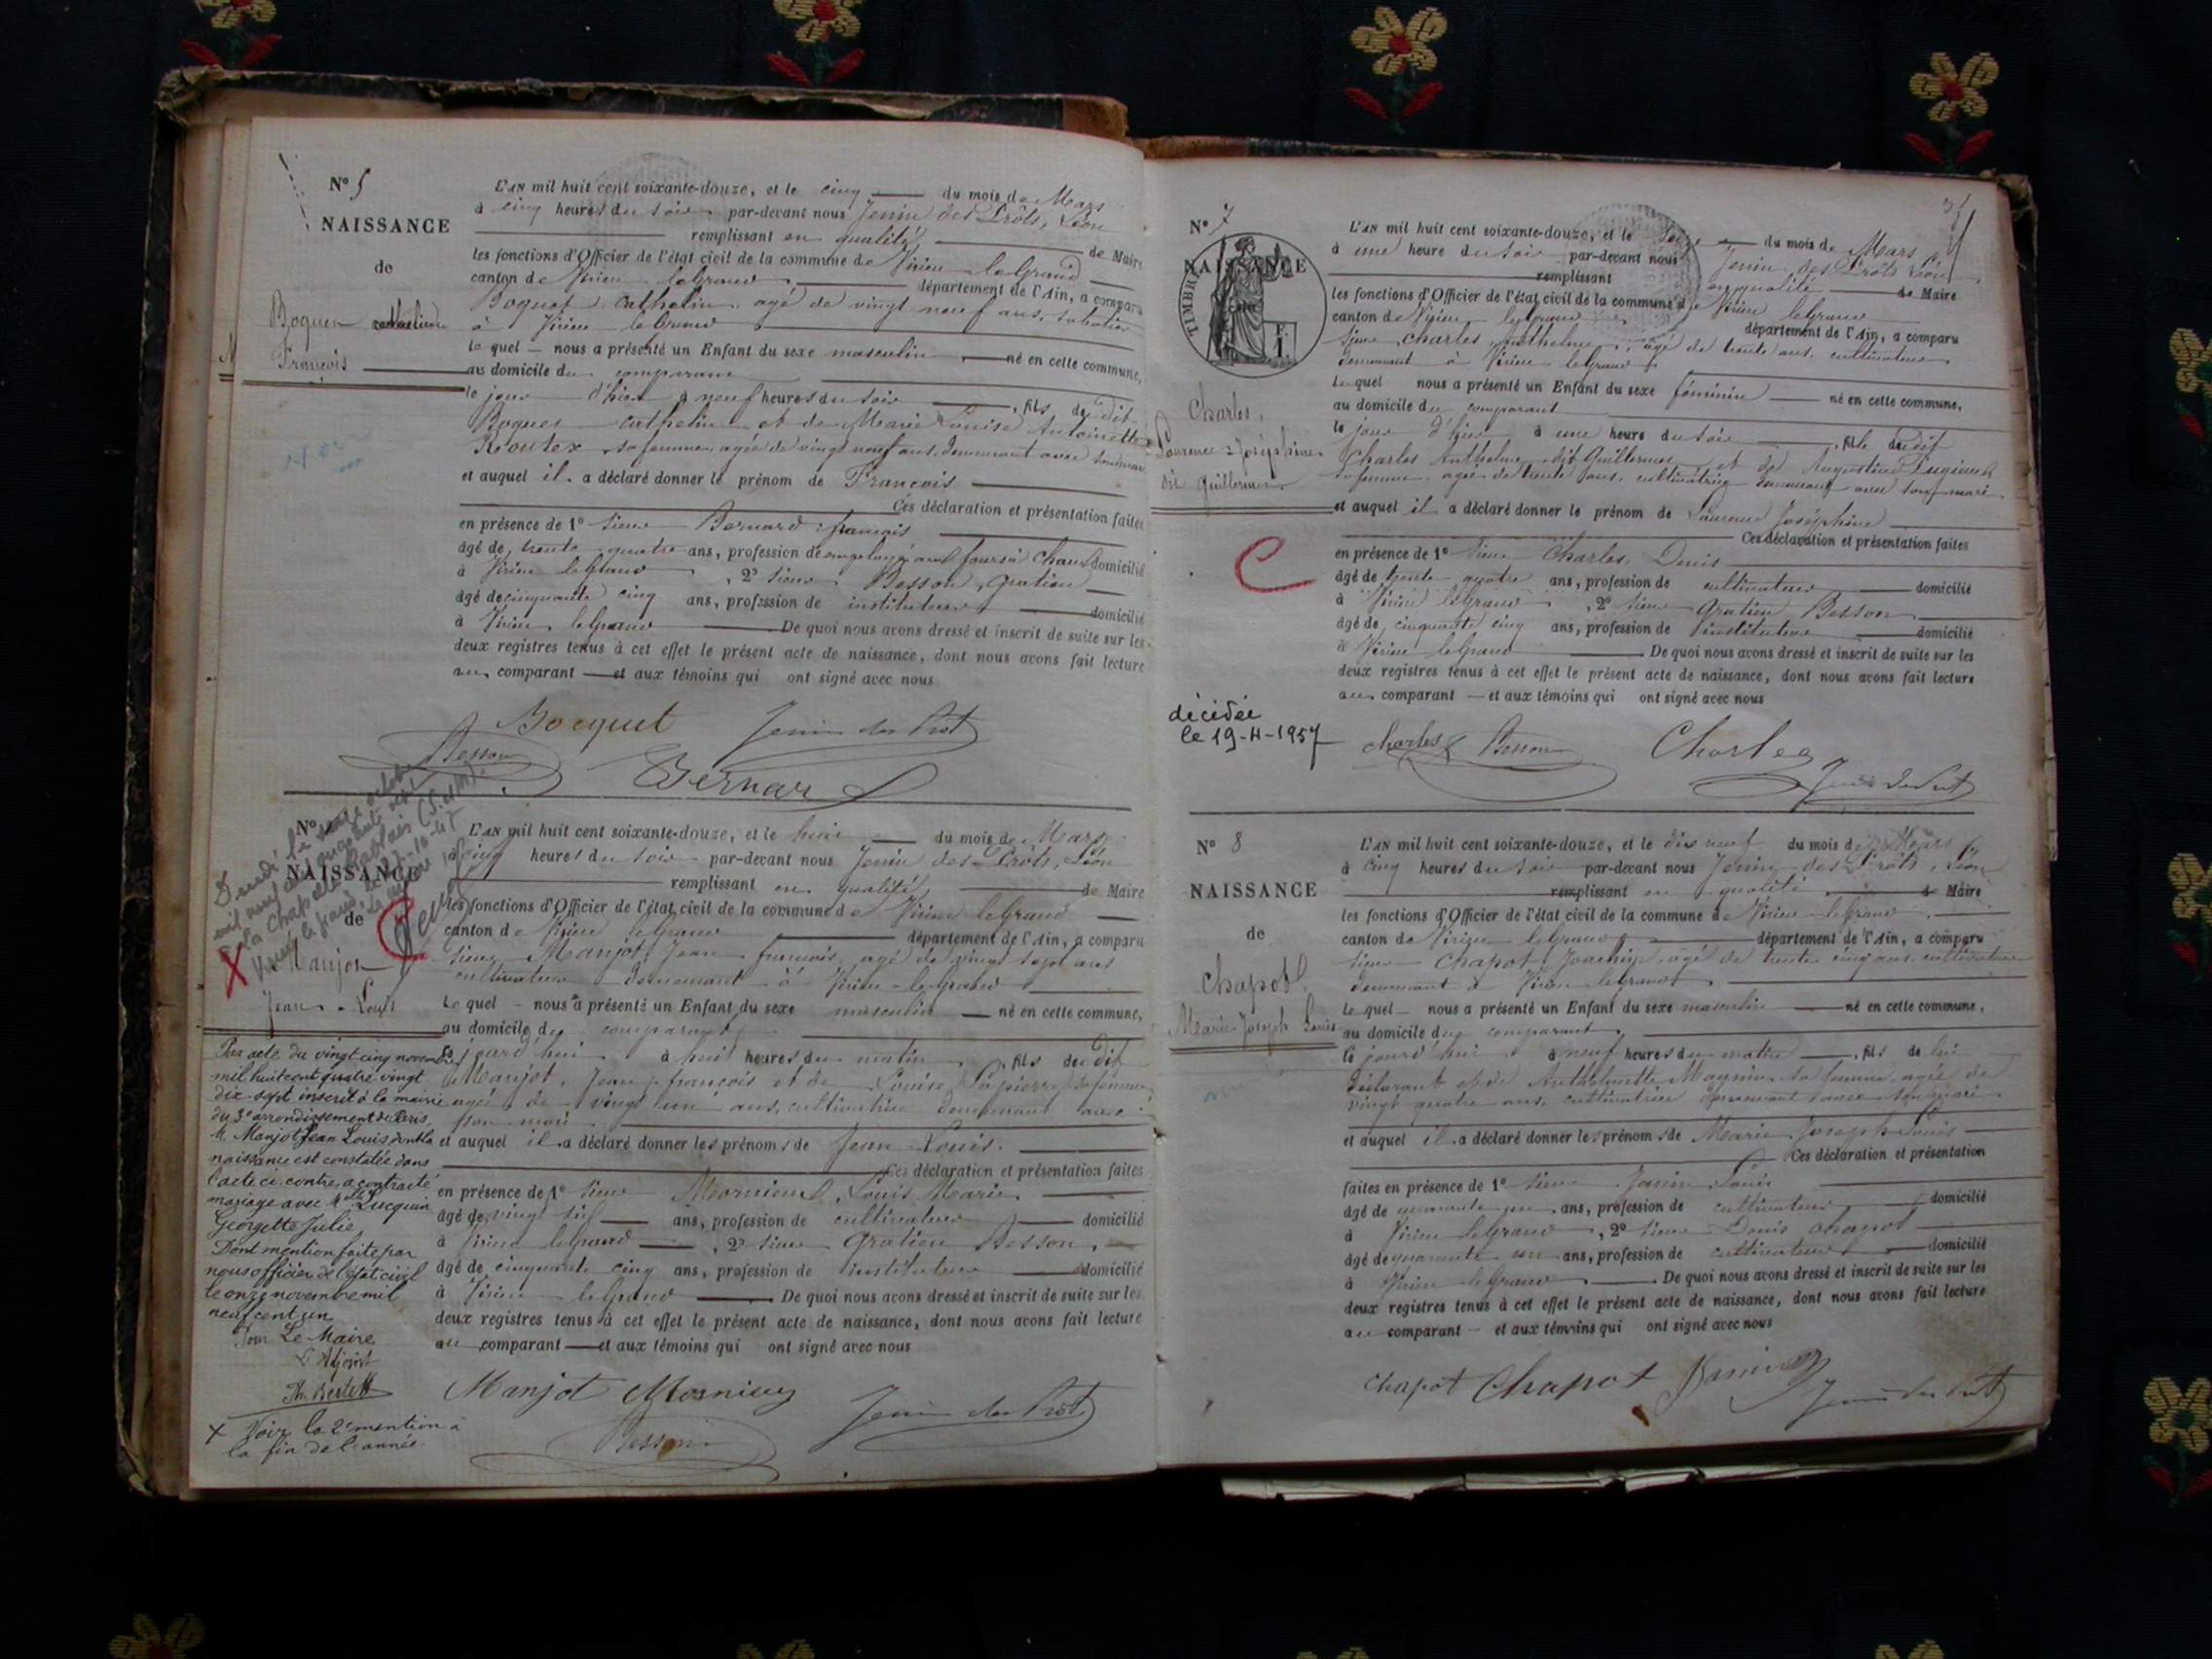 N° 5
NAISSANCE
de
Boquet
François
L'AN mil huit cent soixante-douze, et le cinq du mois de Mars
à cinq heures du soir par-devant nous Jenin des Prôts, Léon
remplissant en qualité de Maire
les fonctions d'Officier de l'état civil de la commune de Virieu le Grand
canton de Virieu le Grand département de l'Ain, a comparu
Boquet Cathelin agé de vingt neuf ans, sabotier
à Virieu le Grand
le quel nous a présenté un Enfant du sexe masculin né en cette commune,
au domicile du comparant
le jour d'hier à neuf heures du soir, fils du dit
Boquet Cathelin et de Marie Louise Antoinette
sa femme agée de vingt neuf ans, demeurant avec son mari
et auquel il a déclaré donner le prénom de François
Ces déclaration et présentation faites
en présence de 1° sieur Bernard françois
âgé de trente quatre ans, profession de employé aux fours à chaux domicilié
à Virieu le Grand, 2° sieur Besson, Gratien
âgé de cinquante cinq ans, profession de instituteur domicilié
à Virieu le Grand De quoi nous avons dressé et inscrit de suite sur les
deux registres tenus à cet effet le présent acte de naissance, dont nous avons fait lecture
au comparant et aux témoins qui ont signé avec nous
Bocquet Jenin des Prôts
Besson
Bernard
N°
NAISSANCE
de
Manjot
Jean Louis
L'AN mil huit cent soixante-douze, et le huit du mois de Mars
à cinq heures du soir par-devant nous Jenin des Prôts, Léon
remplissant en qualité de Maire
les fonctions d'Officier de l'état civil de la commune de Virieu le Grand
canton de Virieu le Grand département de l'Ain, a comparu
sieur Manjot, Jean françois, agé de vingt sept ans
cultivateur demeurant à Virieu-le Grand
le quel nous a présenté un Enfant du sexe masculin né en cette commune,
au domicile du comparant
ce jourd'hui à huit heures du matin, fils du dit
Manjot, Jean françois et de Louise Lapierre, sa femme
agée de vingt un ans, cultivatrice demeurant avec
son mari
et auquel il a déclaré donner les prénoms de Jean Louis.
Ces déclaration et présentation faites
en présence de 1° sieur Mornieux, Louis Marie
âgé de vingt six ans, profession de cultivateur domicilié
à Virieu le Grand, 2° sieur Gratien Besson,
âgé de cinquante cinq ans, profession de instituteur domicilié
à Virieu le Grand De quoi nous avons dressé et inscrit de suite sur les
deux registres tenus à cet effet le présent acte de naissance, dont nous avons fait lecture
au comparant et aux témoins qui ont signé avec nous
Manjot Mornieux Jenin des Prôts
Besson
Par acte du vingt cinq novembre
mil huit cent quatre vingt
dix-sept inscrit à la mairie
du 3e arrondissement de Paris,
M. Manjot Jean Louis dont la
naissance est constatée dans
l'acte ci-contre, a contracté
mariage avec Melle Lucquin
Georgette Julie,
Dont mention faite par
nous officier de l'état civil
le onze novembre mil
neuf cent un
Pour Le Maire
L'Adjoint
X Voir la 2e mention à
la fin de l'année
N° 7
NAISSANCE
TIMBRE
Charles,
Laurence-Joséphine
dit Guillermet
L'AN mil huit cent soixante-douze, et le du mois de Mars
à une heure du soir par-devant nous Jenin des Prôts Léon
remplissant en qualité de Maire
les fonctions d'Officier de l'état civil de la commune de Virieu le Grand
canton de Virieu le Grand département de l'Ain, a comparu
sieur Charles, Anthelme, agé de trente ans, cultivateur
demeurant à Virieu le Grand
le quel nous a présenté un Enfant du sexe féminin né en cette commune,
au domicile du comparant
le jour d'hier à une heure du soir, fille du dit
Charles Anthelme dit Guillermet et de Augustine
sa femme agée de trente ans, cultivatrice demeurant avec son mari
et auquel il a déclaré donner le prénom de Laurence Joséphine
Ces déclaration et présentation faites
en présence de 1° sieur Charles, Denis
âgé de trente quatre ans, profession de cultivateur domicilié
à Virieu le Grand, 2° sieur Gratien Besson
âgé de cinquante cinq ans, profession de instituteur domicilié
à Virieu le Grand De quoi nous avons dressé et inscrit de suite sur les
deux registres tenus à cet effet le présent acte de naissance, dont nous avons fait lecture
au comparant et aux témoins qui ont signé avec nous
décédée
le 19-4-1957
Charles Besson Charles
Jenin des Prôts
N° 8
NAISSANCE
de
Chapot
Marie Joseph Louis
L'AN mil huit cent soixante-douze, et le dix neuf du mois de Mars
à cinq heures du soir par-devant nous Jenin des Prôts, Léon
remplissant en qualité de Maire
les fonctions d'Officier de l'état civil de la commune de Virieu le Grand
canton de Virieu le Grand département de l'Ain, a comparu
sieur Chapot, Joachim, agé de trente cinq ans, cultivateur
demeurant à Virieu le Grand
le quel nous a présenté un Enfant du sexe masculin né en cette commune,
au domicile du comparant
ce jourd'hui à neuf heures du matin, fils de lui
déclarant et de Anthelmette Magnin sa femme, agée de
vingt quatre ans, cultivatrice demeurant avec son mari
et auquel il a déclaré donner les prénoms de Marie Joseph Louis
Ces déclaration et présentation
faites en présence de 1° sieur Janin Louis
âgé de quarante un ans, profession de cultivateur domicilié
à Virieu le Grand, 2° sieur Denis Chapot
âgé de quarante un ans, profession de cultivateur domicilié
à Virieu le Grand. De quoi nous avons dressé et inscrit de suite sur les
deux registres tenus à cet effet le présent acte de naissance, dont nous avons fait lecture
au comparant et aux témoins qui ont signé avec nous
Chapot Chapot Janin
Jenin des Prôts